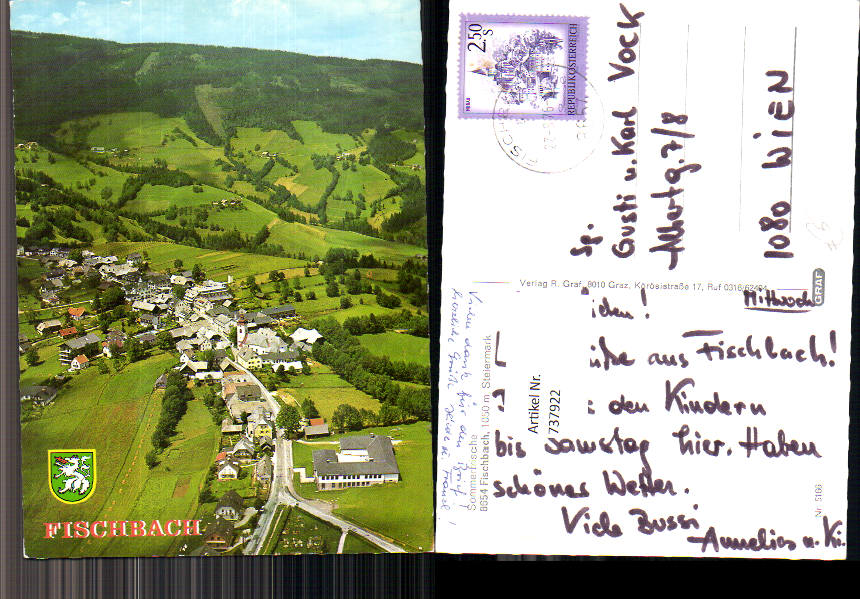 FISCHBACH
2.50 S
REPUBLIK ÖSTERREICH
MURAU
Sp.
Gusti u. Karl Vock
Albertg. 7/8
1080 WiEN
Verlag R. Graf, 8010 Graz, Körösistraße 17, Ruf 0316/62494
GRAF
Mittwoch
iden!
üße aus Fischbach!
den Kindern
bis Samstag hier. Haben
schönes Wetter.
Viele Bussi
Annelies u. Ki.
Artikel Nr.
737922
Sommerfrische
8654 Fischbach, 1050 m, Steiermark
Vielen Dank für den Brief!
Nr. 5106